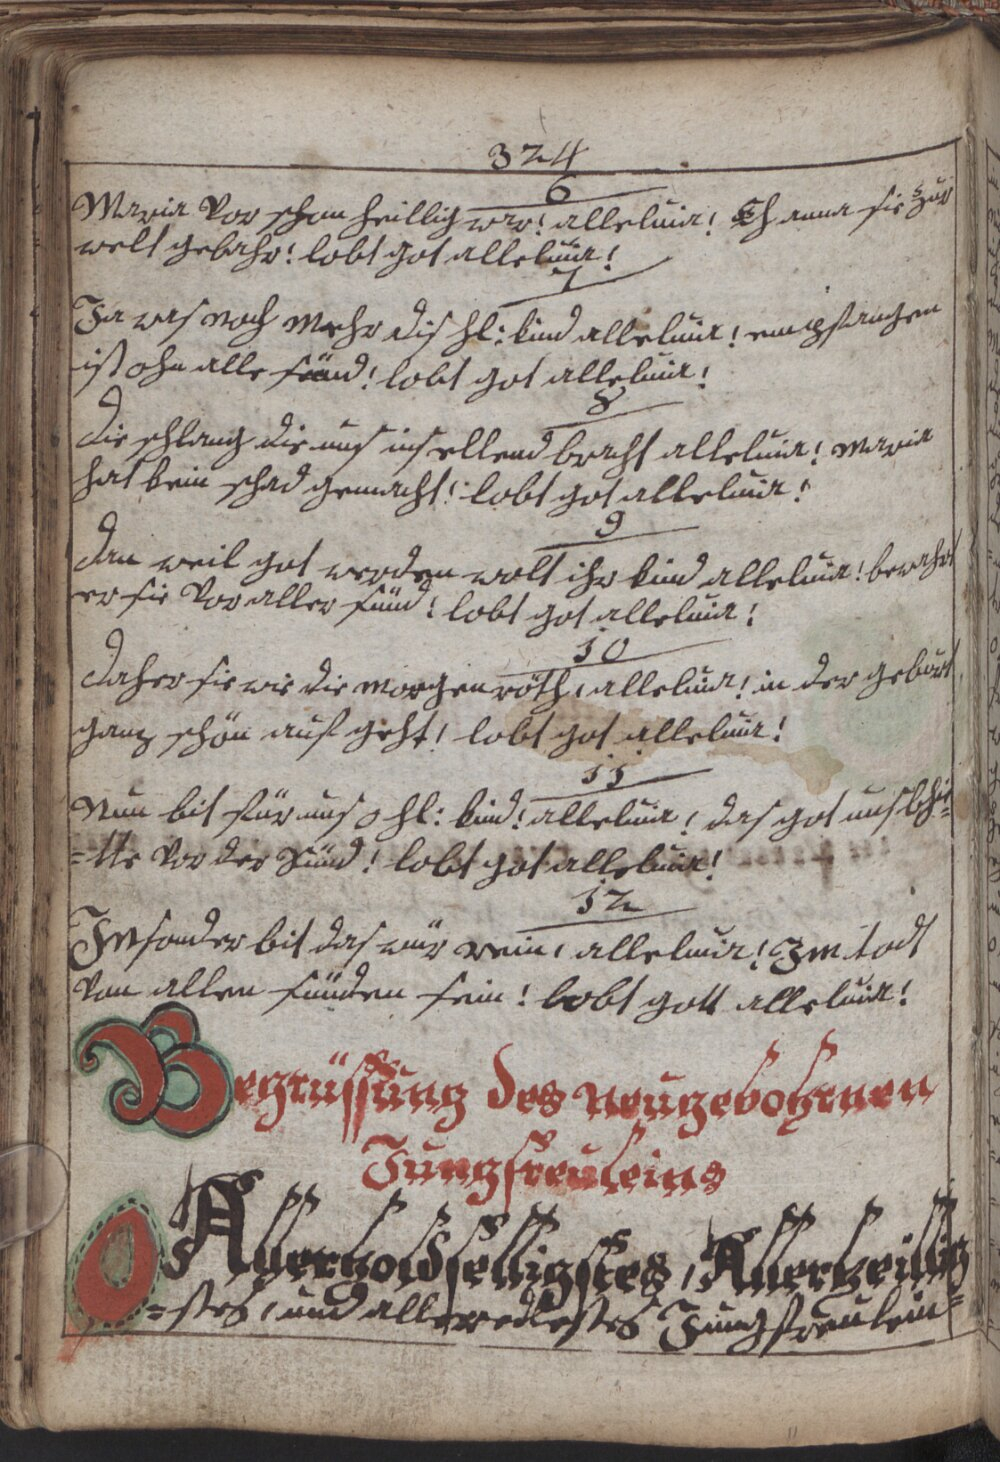 324
6
Maria Vor schon heillig war! alleluia! Eh anna sie zur
welt gebahr! lobt got alleluia!
7
Ja was noch Mehr dis hl: kind alleluia! empfangen
ist ohn alle sünd! lobt got alleluia!
8
die schlang die uns ins ellend bracht alleluia! Maria
hat kein schad gemacht! lobt got alleluia!
9
dan weil got werden wolt ihr kind alleluia! bewahrt
er sie Vor aller sünd! lobt got alleluia!
10
daher sie wie die morgenröth, alleluia! in der geburt
ganz schön auf geht! lobt got alleluia!
11
Nun bit für uns o hl: kind! alleluia! das got uns behie=
=tte Vor der Sünd! lobt got alleluia!
12
Insonder bit das wür rein, alleluia! Im todt
Von allen sünden sein! lobt gott alleluia!
Begrüssung des Neugebohrnen
Jungfreuleins
O Allerholdselligstes, Allerheillig
=stes, und alleredlestes Jungfreulein=